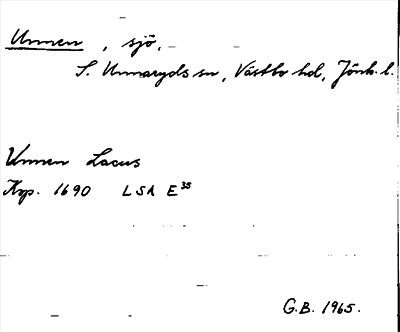 Unnen, sjö,
S. Unnaryds sn, Västbo hd, Jönk. l.
Unnen Lacus
Kop. 1690 LSA E 35
G.B. 1965.